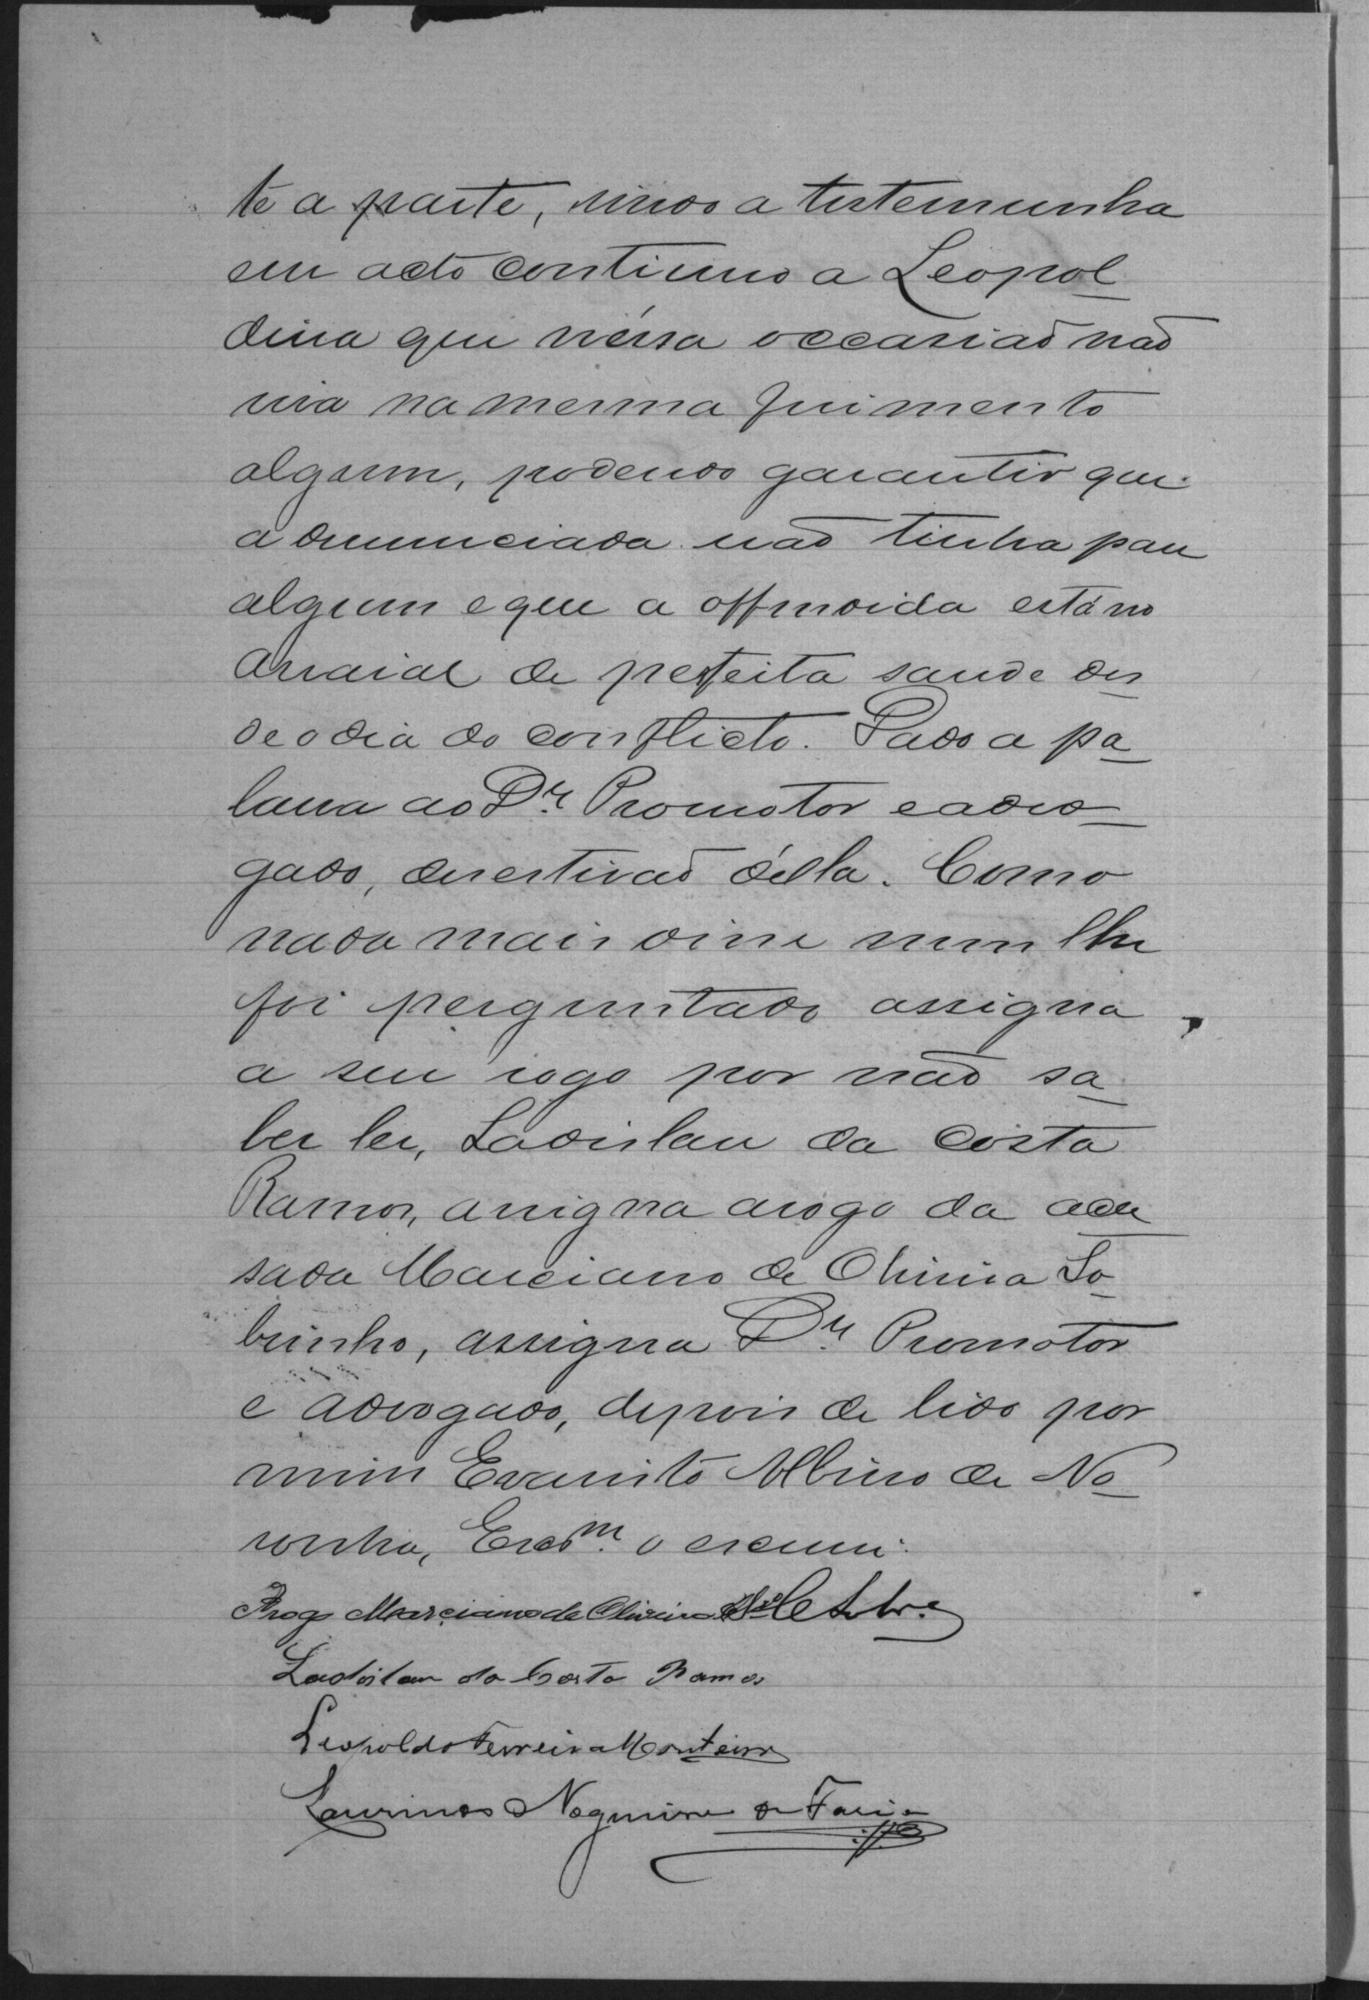 te a parte, vindo a testemunha
em acto continuo a Leopol-
dina que néssa occasião não
via na mesma ferimento
algum, podendo garantir que
a denunciada não tinha pau
algum e que a offendida está no
arraial de perfeita saude des
de o dia do conflicto. Dado a pa-
lavra ao Dr. Promotor e advo-
gado, desestirão d'ella. Como
nada mais disse nem lhe
foi perguntado assigna
a seu rogo por não sa-
ber ler, Ladislau da Costa
Ramos, assigna arogo da accu
sada Marciano de Oliveira So-
brinho, assigna Dr. Promotor
e advogado, depois de lido por
mim Evaristo Albino de No-
ronha, Escm. o escrevi.
Arogo Marciano de Oliveira Sobr.
Ladislau da Costa Ramos
Leopoldo Ferreira Monteiro
Laurindo Nogueira de Faria